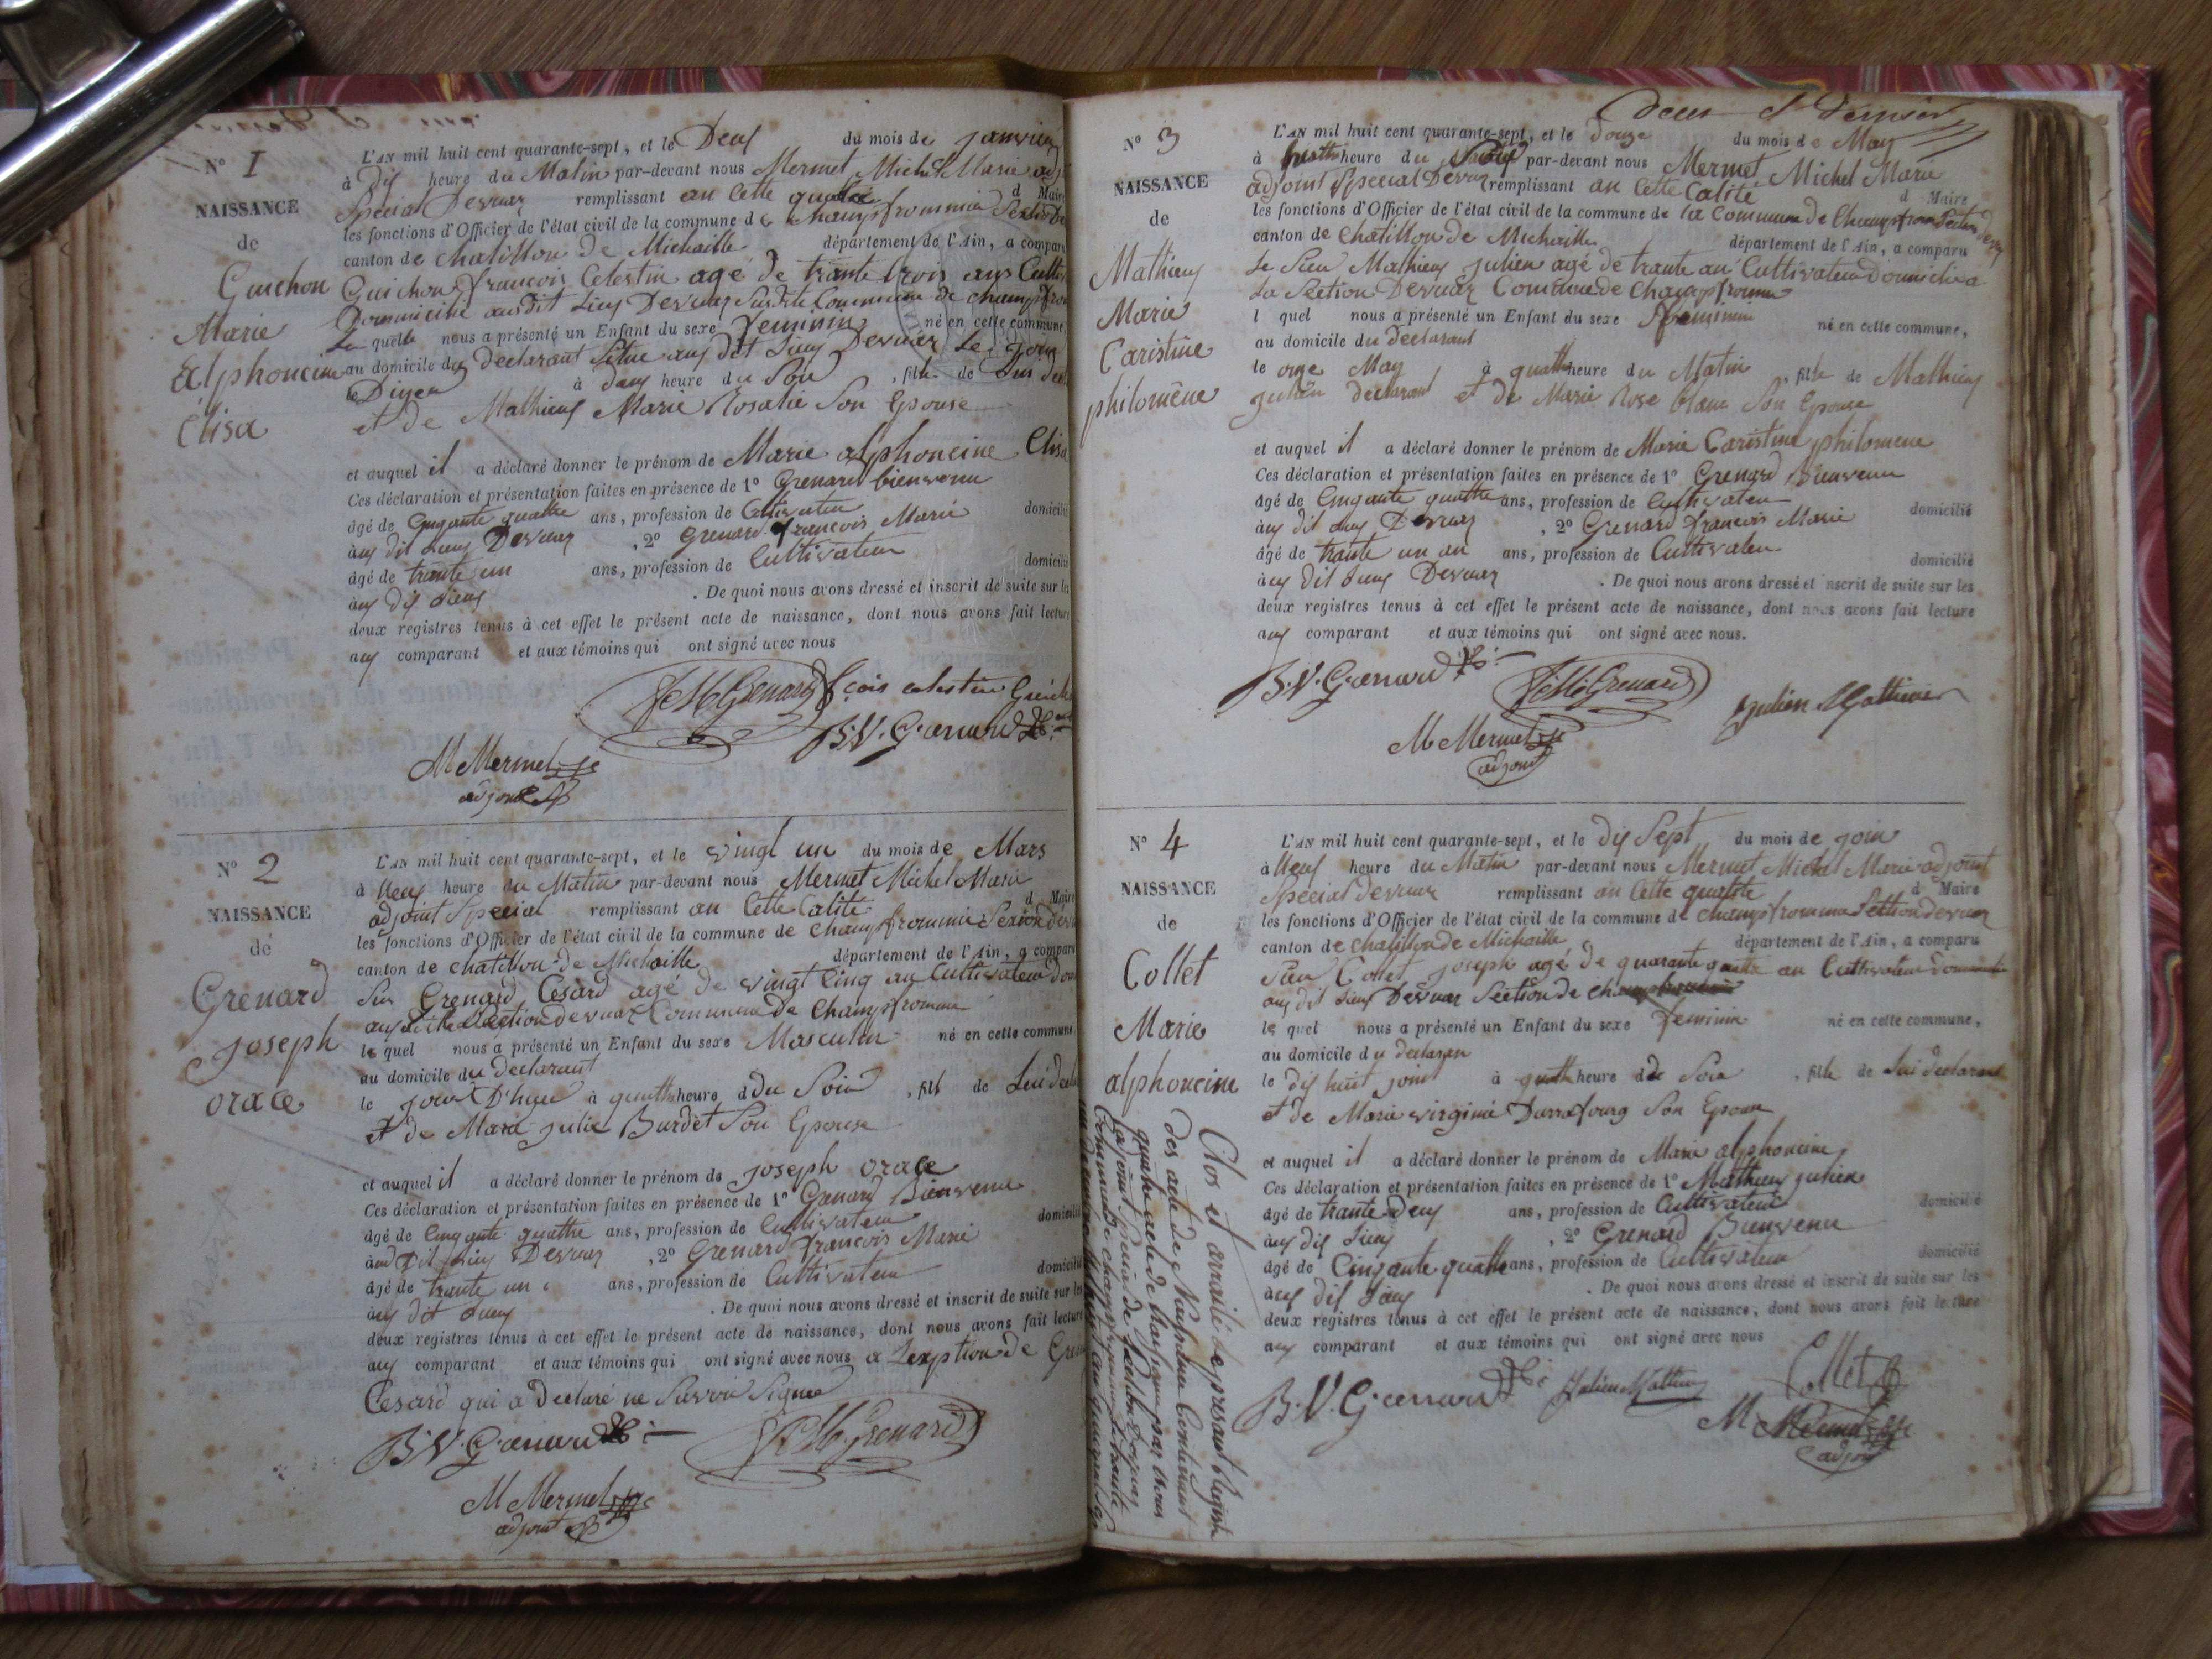 N° 1
NAISSANCE
de
Guichon
Marie
Alphoncine
Élisa
L'AN mil huit cent quarante-sept, et le Deux du mois de janvier
à Dix heure du Matin par-devant nous Mermet Michel Marie adj
Special Devuaz remplissant an Cette qualité d Maire
les fonctions d'Officier de l'état civil de la commune de Champfrommier Section De
canton de Chatillon de Michaille département de l'Ain, a comparu
Guichon françois Celestin agé de trante trois ans Cultiv
Domicilié audit Lieux Devuaz Susdite Commune de champfrom
Le quelle nous a présenté un Enfant du sexe Feminin né en cette commune,
au domicile du declarant Situe aux dit Lieux Devuaz Le jour
à deux heure du Soir , fille de Lui dec
et de Mathieux Marie Rosalie Son Epouse
et auquel il a déclaré donner le prénom de Marie alphoncine Elisa
Ces déclaration et présentation faites en présence de 1° Grenard bienvenu
âgé de Cinqante quattre ans, profession de Cultivateur domicilié
aux dit Lieux Devuaz , 2° Grenard françois Marie
âgé de trante un ans, profession de Cultivateur domicilié
aux dit Lieux . De quoi nous avons dressé et inscrit de suite sur les
deux registres tenus à cet effet le présent acte de naissance, dont nous avons fait lecture
aux comparant et aux témoins qui ont signé avec nous
F M Grenard fçois celestin Guich
B.V. Grenard
M Mermet
adjoint
N° 2
NAISSANCE
de
Grenard
Joseph
orace
L'AN mil huit cent quarante-sept, et le vingt un du mois de Mars
à Neuf heure du Matin par-devant nous Mermet Michel Marie
adjoint Special remplissant an Cette Calité d Maire
les fonctions d'Officier de l'état civil de la commune de Champfrommier Section Devu
canton de Chatillon de Michaille département de l'Ain, a comparu
Sieur Grenard Cesard agé de vingt Cinq an Cultivateur Dom
aux dit Section devuaz Commune De Champfrommier
le quel nous a présenté un Enfant du sexe Masculin né en cette commune
au domicile du declarant
le jour D'huis à quattre heure d du Soir , fils de Lui decla
et de Marie julie Burdet Son Epouse
et auquel il a déclaré donner le prénom de joseph orace
Ces déclaration et présentation faites en présence de 1° Grenard Bienvenu
âgé de Cinqante quattre ans, profession de Cultivateur domicilié
aux Dit Lieux Devuaz , 2° Grenard françois Marie
âgé de trante un ans, profession de Cultivateur domicilié
aux dit Lieux . De quoi nous avons dressé et inscrit de suite sur les
deux registres tenus à cet effet le présent acte de naissance, dont nous avons fait lecture
aux comparant et aux témoins qui ont signé avec nous a Lexption de Gren
Cesard qui a Declaré ne Savoir Signer
B.V. Grenard F M Grenard
M Mermet
adjoint
deux et Dernier
N° 3
NAISSANCE
de
Mathieux
Marie
Caristine
philomène
L'AN mil huit cent quarante-sept, et le douze du mois de May
à heure du par-devant nous Mermet Michel Marie
adjoint Special Devuaz remplissant an Cette Calité d Maire
les fonctions d'Officier de l'état civil de la commune de la Commune de Champfrom Section
canton de Chatillon de Michaille département de l'Ain, a comparu
Le Sieur Mathieux julien agé de trante an Cultivateur Domicilié a
La Section Devuaz Commune de Champfrommier
l quel nous a présenté un Enfant du sexe feminin né en cette commune,
au domicile du declarant
le onze May à quattre heure du Matin , fille de Mathieux
julien declarant et de Marie Rose blanc Son Epouse
et auquel il a déclaré donner le prénom de Marie Caristine philomene
Ces déclaration et présentation faites en présence de 1° Grenard Bienvenu
âgé de Cinqante quattre ans, profession de Cultivateur domicilié
aux dit Lieux Devuaz , 2° Grenard françois Marie
âgé de trante un an ans, profession de Cultivateur domicilié
aux dit Lieux Devuaz . De quoi nous avons dressé et inscrit de suite sur les
deux registres tenus à cet effet le présent acte de naissance, dont nous avons fait lecture
aux comparant et aux témoins qui ont signé avec nous.
B.V. Grenard F M Grenard julien Mathieux
M Mermet
adjoint
N° 4
NAISSANCE
de
Collet
Marie
alphoncine
L'AN mil huit cent quarante-sept, et le dix Sept du mois de join
à Neuf heure du Matin par-devant nous Mermet Michel Marie adjoint
Special devuaz remplissant an Cette qualité d Maire
les fonctions d'Officier de l'état civil de la commune de champfrommier Section devuaz
canton de chatillon de Michaille département de l'Ain, a comparu
Sieur Collet joseph agé de quarante quattre an Cultivateur Domicilié
aux dit Lieux Devuaz Section de
le quel nous a présenté un Enfant du sexe feminin né en cette commune,
au domicile du declaran
le dix huit joint à quattre heure d du Soir , fille de Lui declarant
et de Marie virginie Durrafourg Son Epouse
et auquel il a déclaré donner le prénom de Marie alphoncine
Ces déclaration et présentation faites en présence de 1° Mathieux julien
âgé de trante Deux ans, profession de Cultivateur domicilié
aux dit Lieux , 2° Grenard Bienvenu
âgé de Cinqante quattre ans, profession de Cultivateur domicilié
aux dit Lieux . De quoi nous avons dressé et inscrit de suite sur les
deux registres tenus à cet effet le présent acte de naissance, dont nous avons fait lecture
aux comparant et aux témoins qui ont signé avec nous
B.V. Grenard Julien Mathieux Collet
M Mermet
adjoint
Clos et arraité le prisant Regist
des acte de Naisance Contenant
quattre acte de Naisance par nous
adjoint Special de Section Devuaz